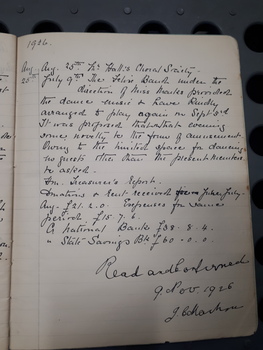 1926.
Aug. Aug. 25th The Hall's Choral Society.
25th July 9th The Felix Band under the
direction of Miss Marks provided
the dance music & have kindly
arranged to play again on Sept 3rd
It was proposed that that evening
some novelty to the form of amusement.
Owing to the limited space for dancing
no guests other than the present members
be asked.
Treasurer's Report.
Donations & rent received June, July,
Aug. £21.2.0. Expenses for same
period. £15.7.6.
Cr National Bank £38.8.4.
" State Savings Bk £60.0.0.
Read and Confirmed
9 Nov 1926